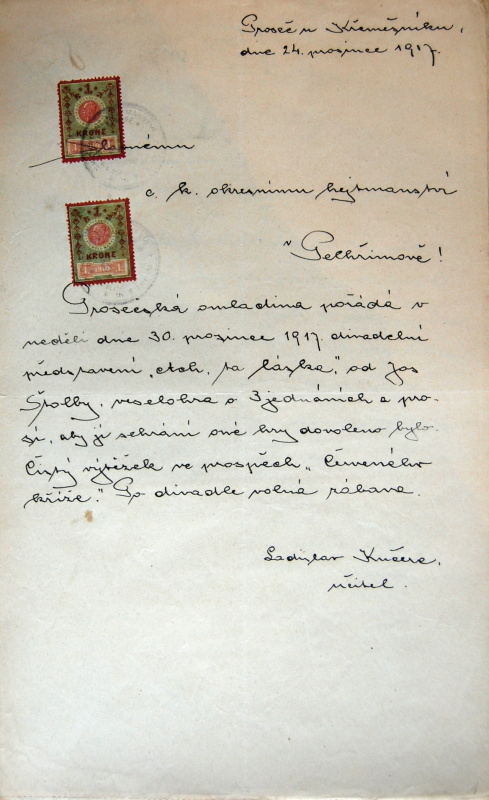 Proseč u Křemešníku,
dne 24. prosince 1917.
1
KRONE
1 1910 1
Slavnému
c. k. okresnímu hejtmanství
1
KRONE
1 1910 1
v Pelhřimově!
Prosečská omladina pořádá v
neděli dne 30. prosince 1917. divadelní
představení „Ach, ta láska", od Jos
Štolby, veselohra o 3 jednáních a pro-
sí, aby jí sehrání své hry dovoleno bylo.
Čistý výtěžek ve prospěch „Červeného
kříže." Po divadle volná zábava.
Ladislav Kučera,
učitel.